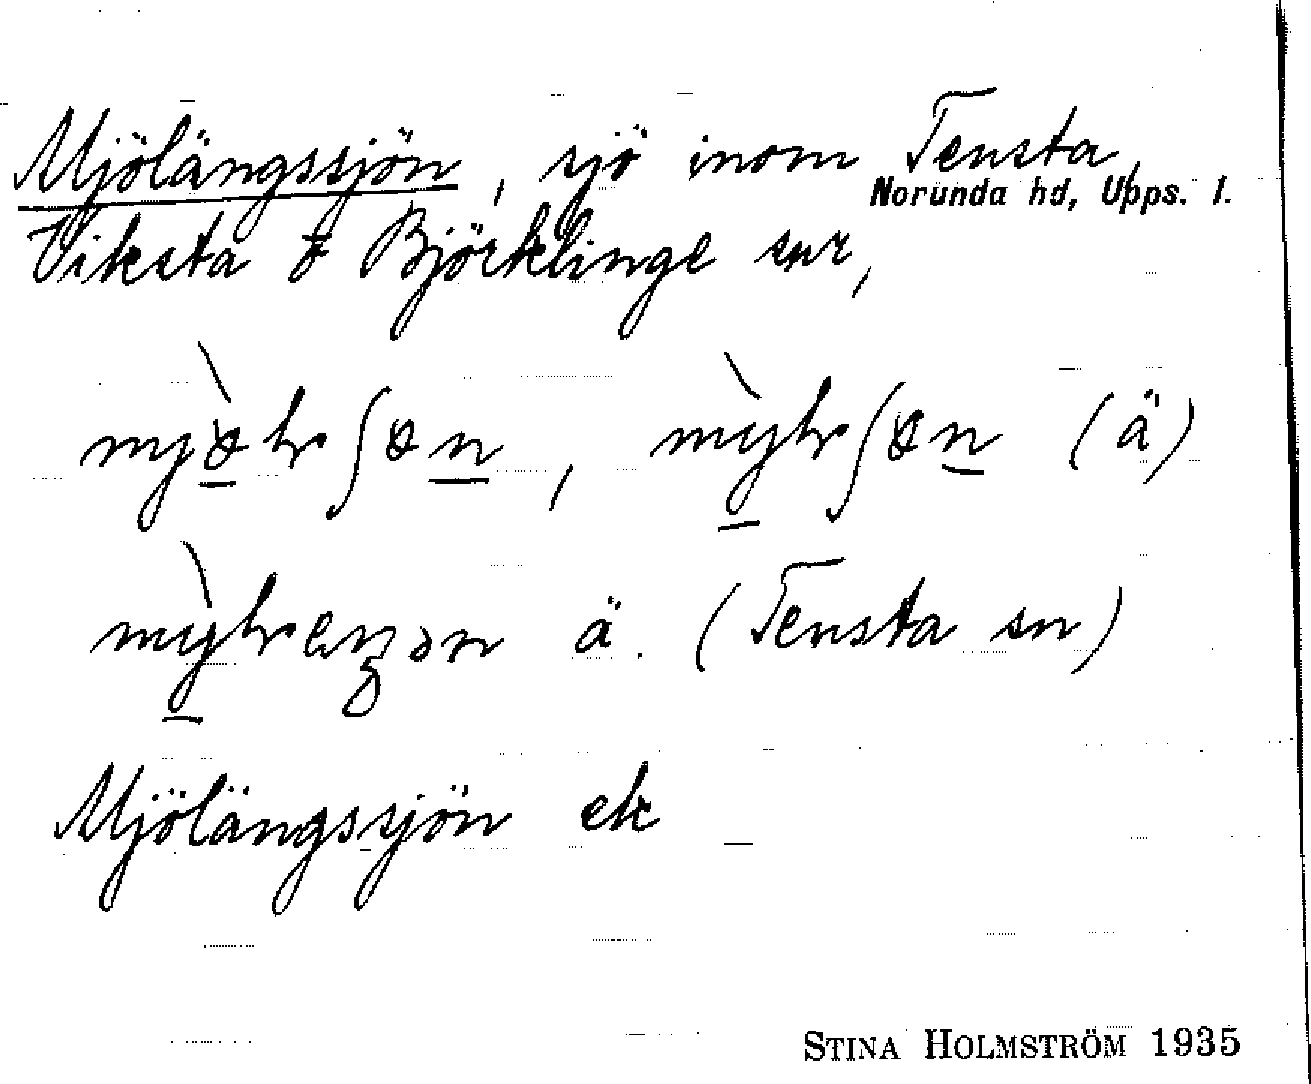 Mjölängssjön, sjö inom Tensta,
Norunda hd, Upps. l.
Viksta o Björklinge snr,
(ä)
ä. (Tensta sn)
Mjölängssjön ek
STINA HOLMSTRÖM 1935